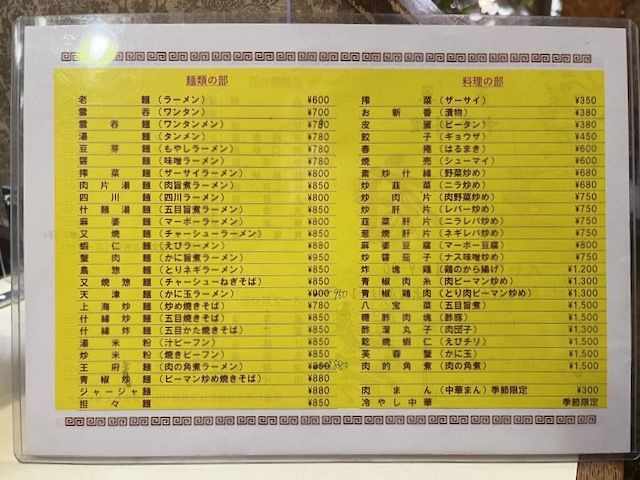 麺類の部
老麺（ラーメン） ¥600
雲呑（ワンタン） ¥700
雲呑麺（ワンタンメン） ¥780
湯麺（タンメン） ¥780
豆芽麺（もやしラーメン） ¥780
醤麺（味噌ラーメン） ¥780
搾菜麺（ザーサイラーメン） ¥800
肉片湯麺（肉旨煮ラーメン） ¥850
四川麺（四川ラーメン） ¥800
什麺湯麺（五目旨煮ラーメン） ¥850
麻婆麺（マーボーラーメン） ¥800
叉焼麺（チャーシューラーメン） ¥850
蝦仁麺（えびラーメン） ¥880
蟹肉麺（かに旨煮ラーメン） ¥950
鳥惣麺（とりネギラーメン） ¥850
叉焼惣麺（チャーシューねぎそば） ¥850
天津麺（かに玉ラーメン） ¥900 950
上海炒麺（炒め焼きそば） ¥780
什綿炒麺（五目焼きそば） ¥850
什綿炸麺（五目かた焼きそば） ¥850
湯米粉（汁ビーフン） ¥850
炒米粉（焼きビーフン） ¥850
王府麺（肉の角煮ラーメン）
青椒炒麺（ピーマン炒め焼きそば） ¥880
ジャージャ麺 ¥880
担々麺 ¥850
料理の部
搾菜（ザーサイ） ¥350
お新香（漬物） ¥380
皮蛋（ピータン） ¥380
餃子（ギョウザ） ¥450
春捲（はるまき） ¥600
焼売（シューマイ） ¥600
素炒什綿（野菜炒め） ¥680
炒韮菜（ニラ炒め） ¥680
炒肉片（肉野菜炒め） ¥750
炒肝片（レバー炒め） ¥750
韮菜肝片（ニラレバ炒め） ¥750
葱焼肝片（ネギレバ炒め） ¥750
麻婆豆腐（マーボー豆腐） ¥800
炒醤茄子（ナス味噌炒め） ¥750
炸塊鶏（鶏のから揚げ） ¥1,200
青椒肉糸（肉ピーマン炒め） ¥1,300
青椒鶏肉（とり肉ピーマン炒め） ¥1,300
八宝菜（五目旨煮） ¥1,500
糖酢肉塊（酢豚） ¥1,500
酢溜丸子（肉団子） ¥1,300
乾焼蝦仁（えびチリ） ¥1,500
芙蓉蟹（かに玉） ¥1,500
肉的角煮（肉の角煮） ¥1,500
肉まん（中華まん）季節限定 ¥300
冷やし中華 季節限定